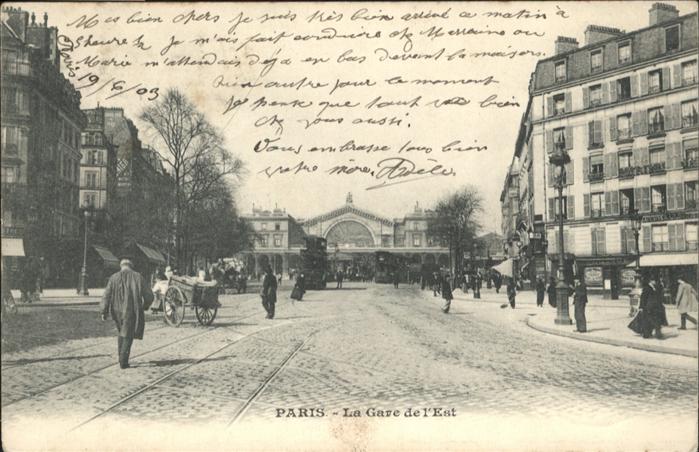 Mes bien chers je suis très bien arrivé ce matin à
5 heure ½ je m'ais fait conduire chez Marraine ou
Marie m'attendais déja en bas devent la maison.
Paris
19/6/03
Rien autre pour le moment
je pense que tout va bien
chez vous aussi.
Vous embrasse tous bien
votre mère. Adèle.
PARIS. - La Gare de l'Est